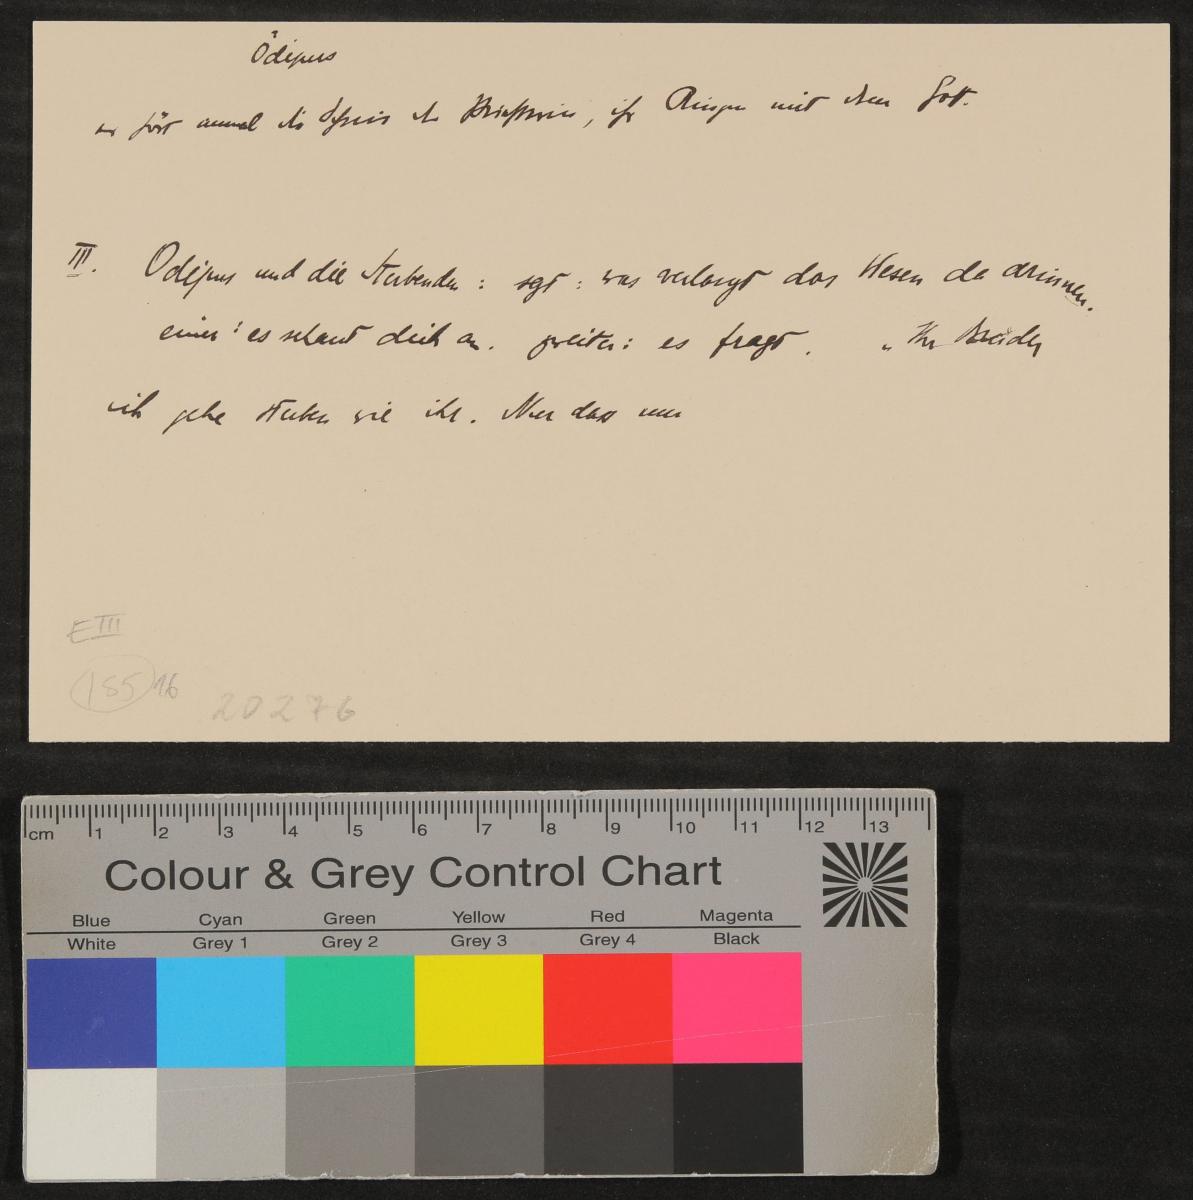 Ödipus
er hört einmal die Schreie der Priesterin, ihr Ringen mit dem Gott.
III. Ödipus und die Sterbenden: sagt: was verlangt das Wesen da drinnen.
einer: es schaut dich an. zweiter: es fragt. „Ihr Brüder
ich gehe sterben wie ihr. Nur dass nur
E III
185 16
20276
cm 1 2 3 4 5 6 7 8 9 10 11 12 13
Colour & Grey Control Chart
Blue Cyan Green Yellow Red Magenta
White Grey 1 Grey 2 Grey 3 Grey 4 Black